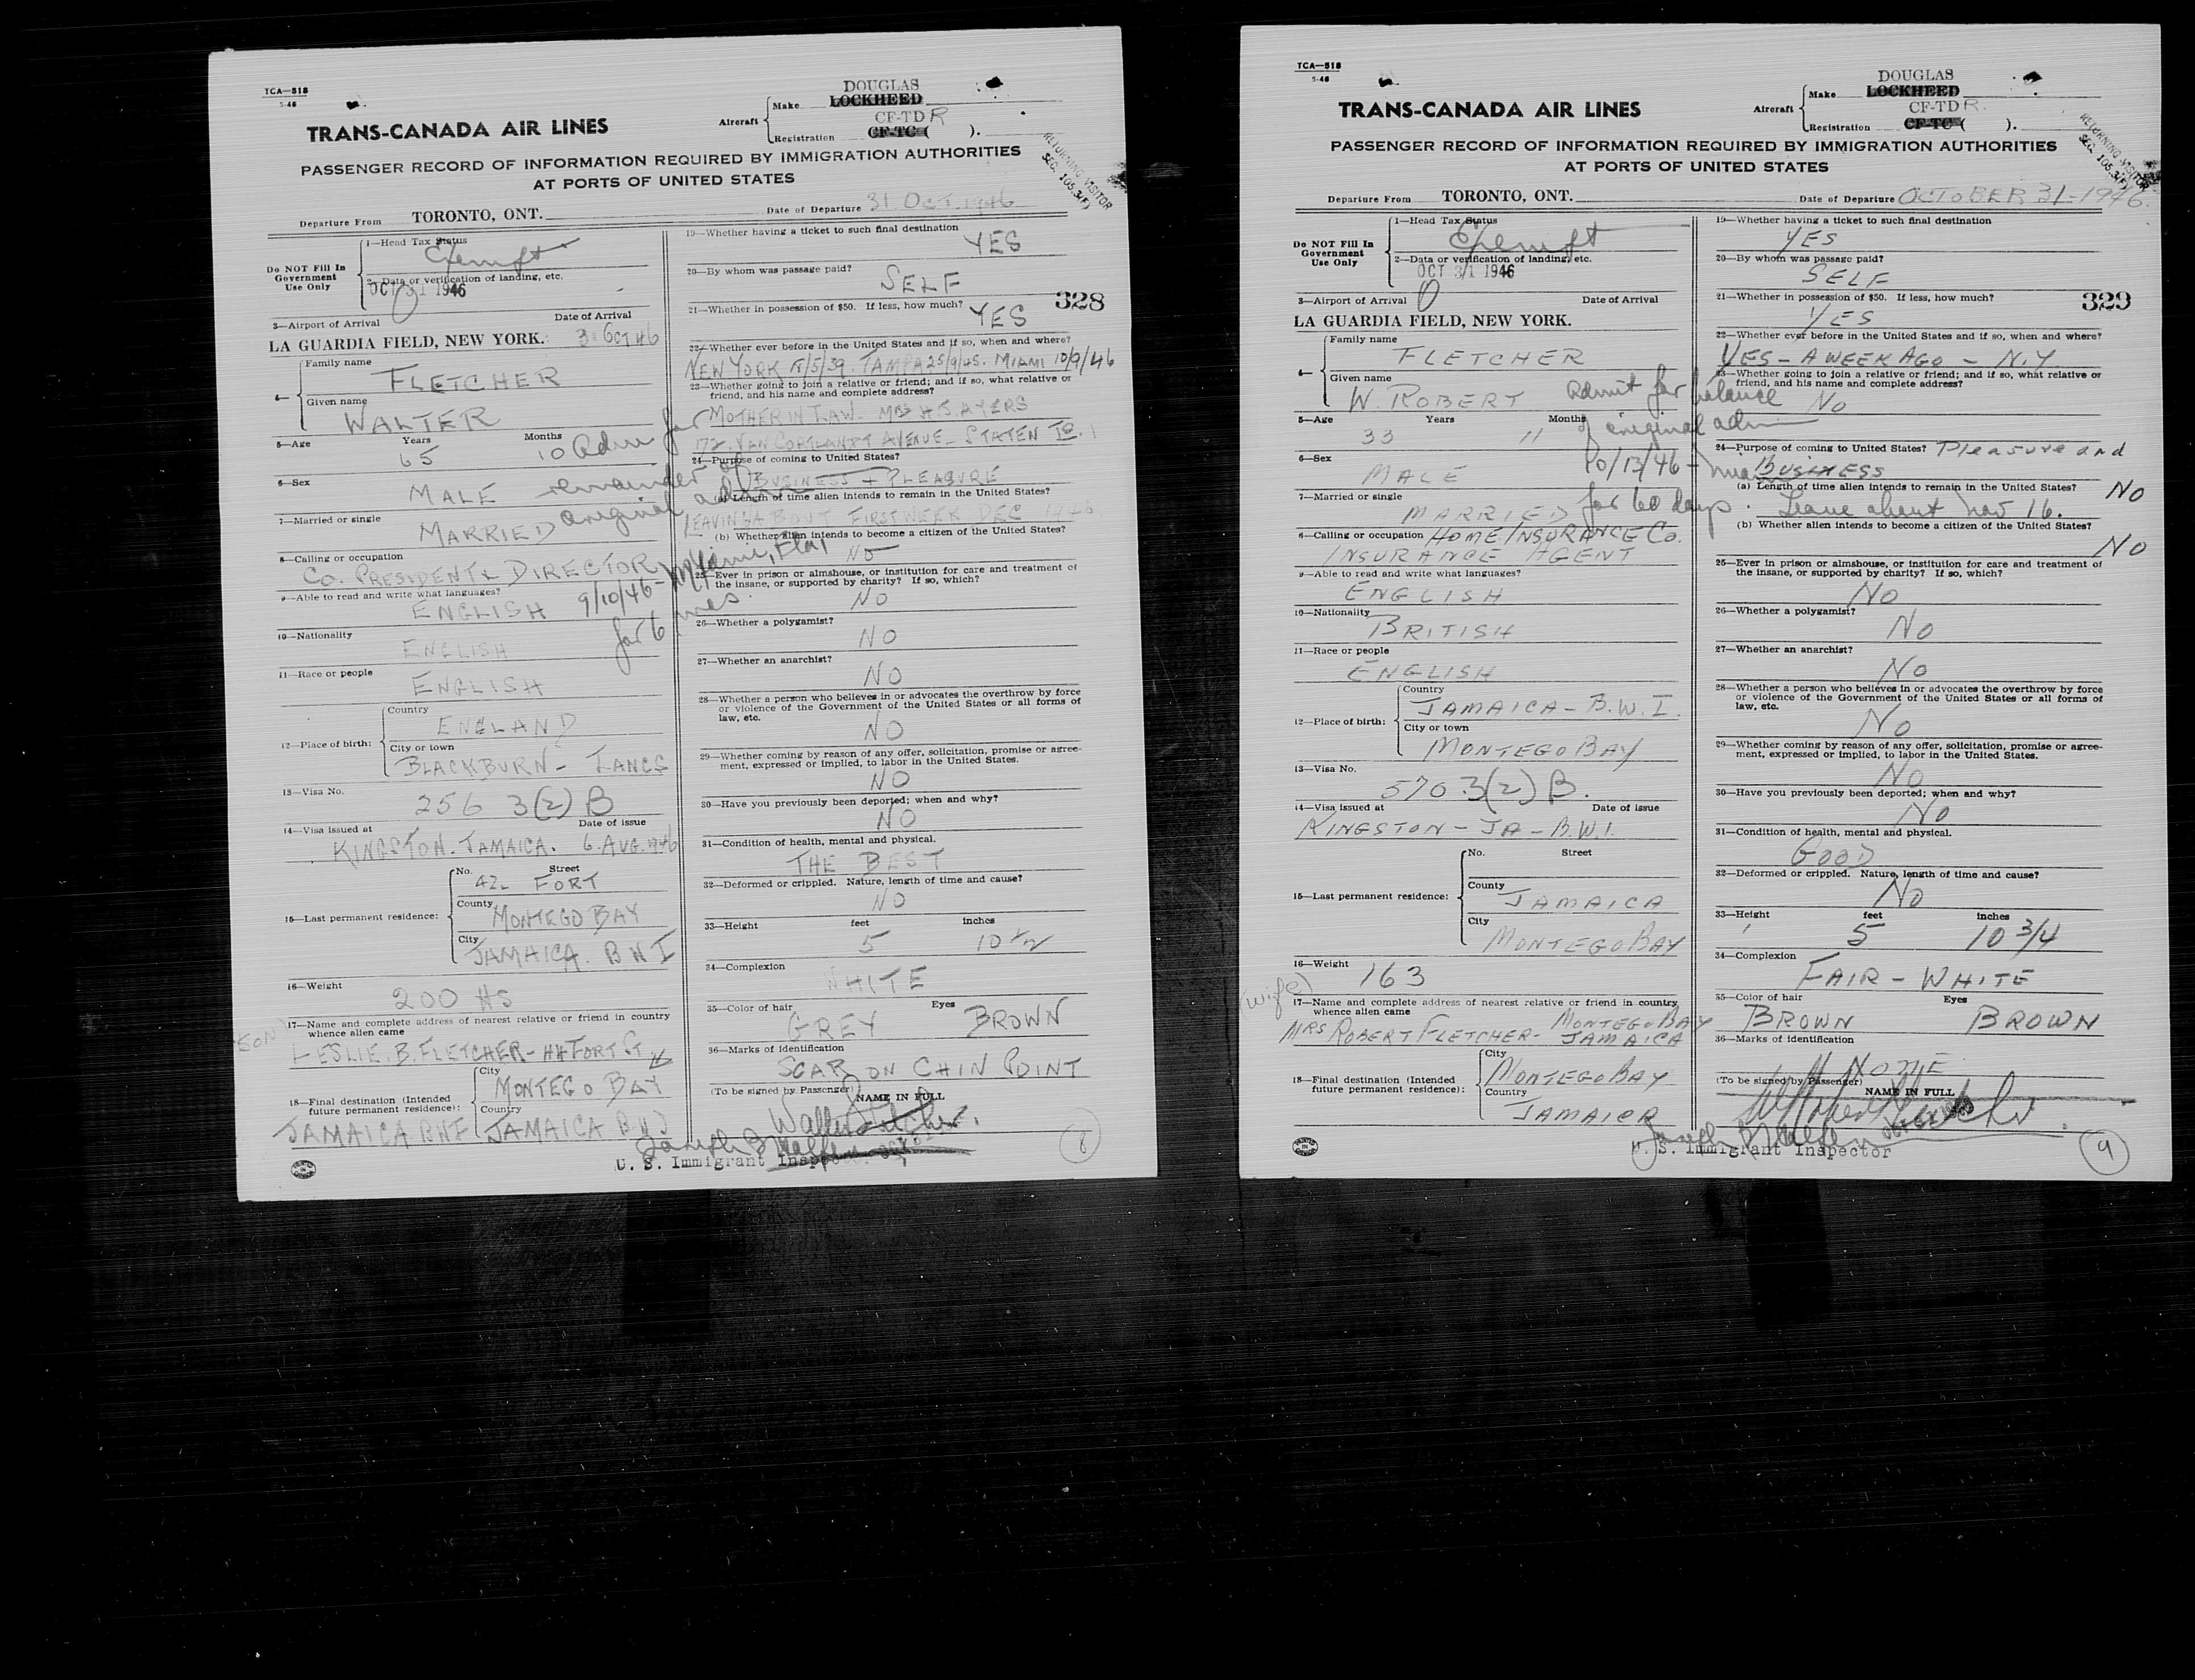 TCA—518
5-46
TRANS-CANADA AIR LINES
Aircraft
Make
DOUGLAS
LOCKHEED
CF-TD R
Registration CF-TC ( ).
PASSENGER RECORD OF INFORMATION REQUIRED BY IMMIGRATION AUTHORITIES
AT PORTS OF UNITED STATES
RETURNING VISITOR
SEC. 105.3(F)
Departure From TORONTO, ONT. Date of Departure 31 OCT. 1946
Do NOT Fill In
Government
Use Only
1—Head Tax Status
Exempt
2—Data or verification of landing, etc.
OCT 31 1946
3—Airport of Arrival Date of Arrival
LA GUARDIA FIELD, NEW YORK. 31 OCT 46
4—
Family name
FLETCHER
Given name
WALTER
5—Age Years Months
65 10
Adm for
remainder of
original adm
Miami, Fla,
9/10/46 —
for 6 mos.
6—Sex
MALE
7—Married or single
MARRIED
8—Calling or occupation
CO. PRESIDENT & DIRECTOR
9—Able to read and write what languages?
ENGLISH
10—Nationality
ENGLISH
11—Race or people
ENGLISH
12—Place of birth:
Country
ENGLAND
City or town
BLACKBURN — LANCS
13—Visa No.
256 3(2) B
14—Visa issued at Date of issue
KINGSTON. JAMAICA. 6. AUG. 1946
15—Last permanent residence:
No. Street
42 FORT
County
MONTEGO BAY
City
JAMAICA. B W I
16—Weight
200 lbs
17—Name and complete address of nearest relative or friend in country
whence alien came
(SON)
LESLIE. B. FLETCHER — 44 FORT ST
18—Final destination (Intended
future permanent residence):
City
MONTEGO BAY
Country
JAMAICA BWI JAMAICA B W I
19—Whether having a ticket to such final destination
YES
20—By whom was passage paid?
SELF
21—Whether in possession of $50. If less, how much?
YES
328
22—Whether ever before in the United States and if so, when and where?
NEW YORK 15/5/39. TAMPA 25/9/45. MIAMI 10/9/46
23—Whether going to join a relative or friend; and if so, what relative or
friend, and his name and complete address?
MOTHER IN LAW. MRS H. S. AYERS
172. VAN CORTLANDT AVENUE — STATEN IS.
24—Purpose of coming to United States?
BUSINESS + PLEASURE
(a) Length of time alien intends to remain in the United States?
LEAVING ABOUT FIRST WEEK DEC 1946
(b) Whether alien intends to become a citizen of the United States?
NO
25—Ever in prison or almshouse, or institution for care and treatment of
the insane, or supported by charity? If so, which?
NO
26—Whether a polygamist?
NO
27—Whether an anarchist?
NO
28—Whether a person who believes in or advocates the overthrow by force
or violence of the Government of the United States or all forms of
law, etc.
NO
29—Whether coming by reason of any offer, solicitation, promise or agree-
ment, expressed or implied, to labor in the United States.
NO
30—Have you previously been deported; when and why?
NO
31—Condition of health, mental and physical.
THE BEST
32—Deformed or crippled. Nature, length of time and cause?
NO
33—Height feet inches
5 10 1/2
34—Complexion
WHITE
35—Color of hair Eyes
GREY BROWN
36—Marks of identification
SCAR ON CHIN POINT
(To be signed by Passenger)
NAME IN FULL
Walter Fletcher.
U. S. Immigrant Inspector
8
TCA—518
5-46
TRANS-CANADA AIR LINES
Aircraft
Make
DOUGLAS
LOCKHEED
CF-TD R.
Registration CF-TC ( ).
PASSENGER RECORD OF INFORMATION REQUIRED BY IMMIGRATION AUTHORITIES
AT PORTS OF UNITED STATES
RETURNING VISITOR
SEC. 105.3(F)
Departure From TORONTO, ONT. Date of Departure OCTOBER 31—1946.
Do NOT Fill In
Government
Use Only
1—Head Tax Status
Exempt
2—Data or verification of landing, etc.
OCT 31 1946
3—Airport of Arrival Date of Arrival
LA GUARDIA FIELD, NEW YORK.
4—
Family name
FLETCHER
Given name
W. ROBERT
Admit for balance
of original adm
10/13/46 — Miami
for 60 days.
5—Age Years Months
33 11
6—Sex
MALE
7—Married or single
MARRIED
8—Calling or occupation HOME INSURANCE CO.
INSURANCE AGENT
9—Able to read and write what languages?
ENGLISH
10—Nationality
BRITISH
11—Race or people
ENGLISH
12—Place of birth:
Country
JAMAICA — B.W.I.
City or town
MONTEGO BAY
13—Visa No.
570 3(2) B.
14—Visa issued at Date of issue
KINGSTON — JA — B.W.I.
15—Last permanent residence:
No. Street
County
JAMAICA
City
MONTEGO BAY
16—Weight
163
17—Name and complete address of nearest relative or friend in country
whence alien came
(wife)
MRS ROBERT FLETCHER — MONTEGO BAY
JAMAICA
18—Final destination (Intended
future permanent residence):
City
MONTEGO BAY
Country
JAMAICA
19—Whether having a ticket to such final destination
YES
20—By whom was passage paid?
SELF
21—Whether in possession of $50. If less, how much?
YES
329
22—Whether ever before in the United States and if so, when and where?
YES — A WEEK AGO — N.Y
23—Whether going to join a relative or friend; and if so, what relative or
friend, and his name and complete address?
NO
24—Purpose of coming to United States? Pleasure and
BUSINESS
(a) Length of time alien intends to remain in the United States? NO
Leave about Nov 16.
(b) Whether alien intends to become a citizen of the United States?
NO
25—Ever in prison or almshouse, or institution for care and treatment of
the insane, or supported by charity? If so, which?
NO
26—Whether a polygamist?
NO
27—Whether an anarchist?
NO
28—Whether a person who believes in or advocates the overthrow by force
or violence of the Government of the United States or all forms of
law, etc.
NO
29—Whether coming by reason of any offer, solicitation, promise or agree-
ment, expressed or implied, to labor in the United States.
NO
30—Have you previously been deported; when and why?
NO
31—Condition of health, mental and physical.
GOOD
32—Deformed or crippled. Nature, length of time and cause?
NO
33—Height feet inches
5 10 3/4
34—Complexion
FAIR — WHITE
35—Color of hair Eyes
BROWN BROWN
36—Marks of identification
NONE
(To be signed by Passenger)
NAME IN FULL
U. S. Immigrant Inspector
9